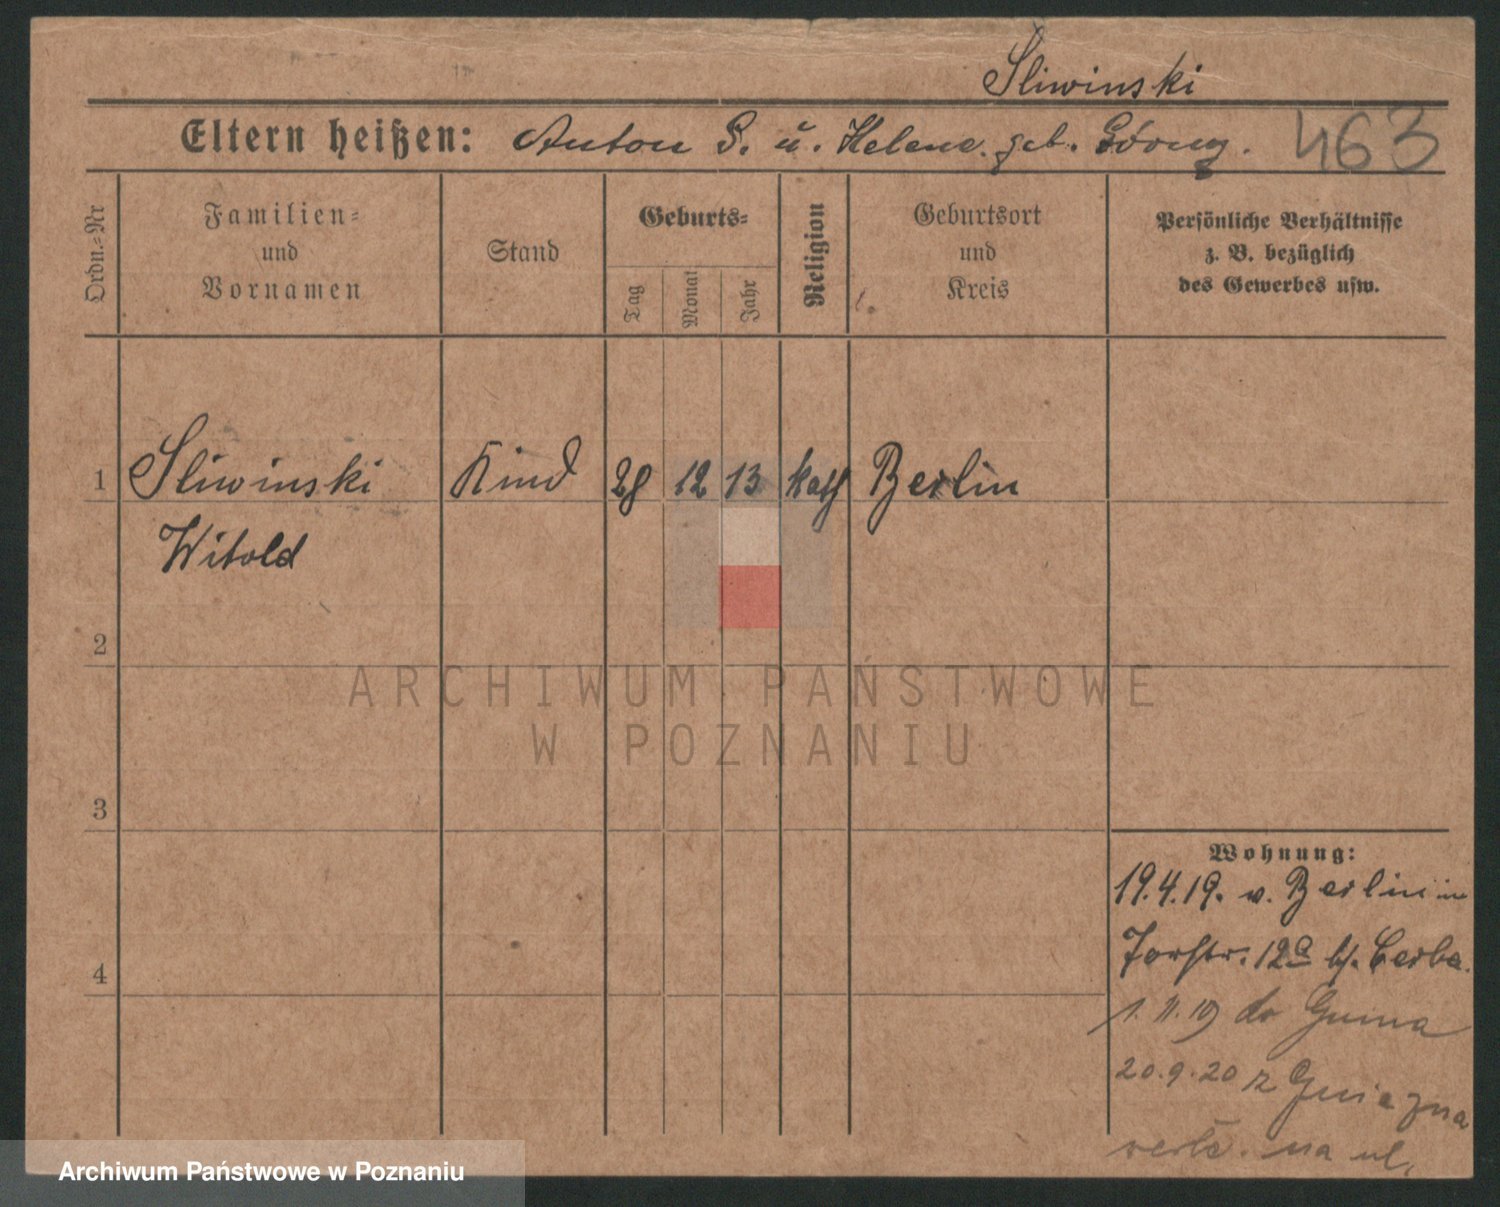 Sliwinski
Eltern heißen: Anton S. u. Helene geb. Górny. 463
Ordn.=Nr
Familien=
und
Vornamen
Stand
Geburts=
Tag
Monat
Jahr
Religion
Geburtsort
und
Kreis
Persönliche Verhältnisse
z. B. bezüglich
des Gewerbes usw.
1 Sliwinski Kind 28 12 13 kath Berlin
Witold
2
ARCHIWUM PAŃSTWOWE
W POZNANIU
3
Wohnung:
19.4.19. v. Berlin in
12a b/.
4
1.11.19 do
20.9.20 z Gniezna
na ul.
Archiwum Państwowe w Poznaniu